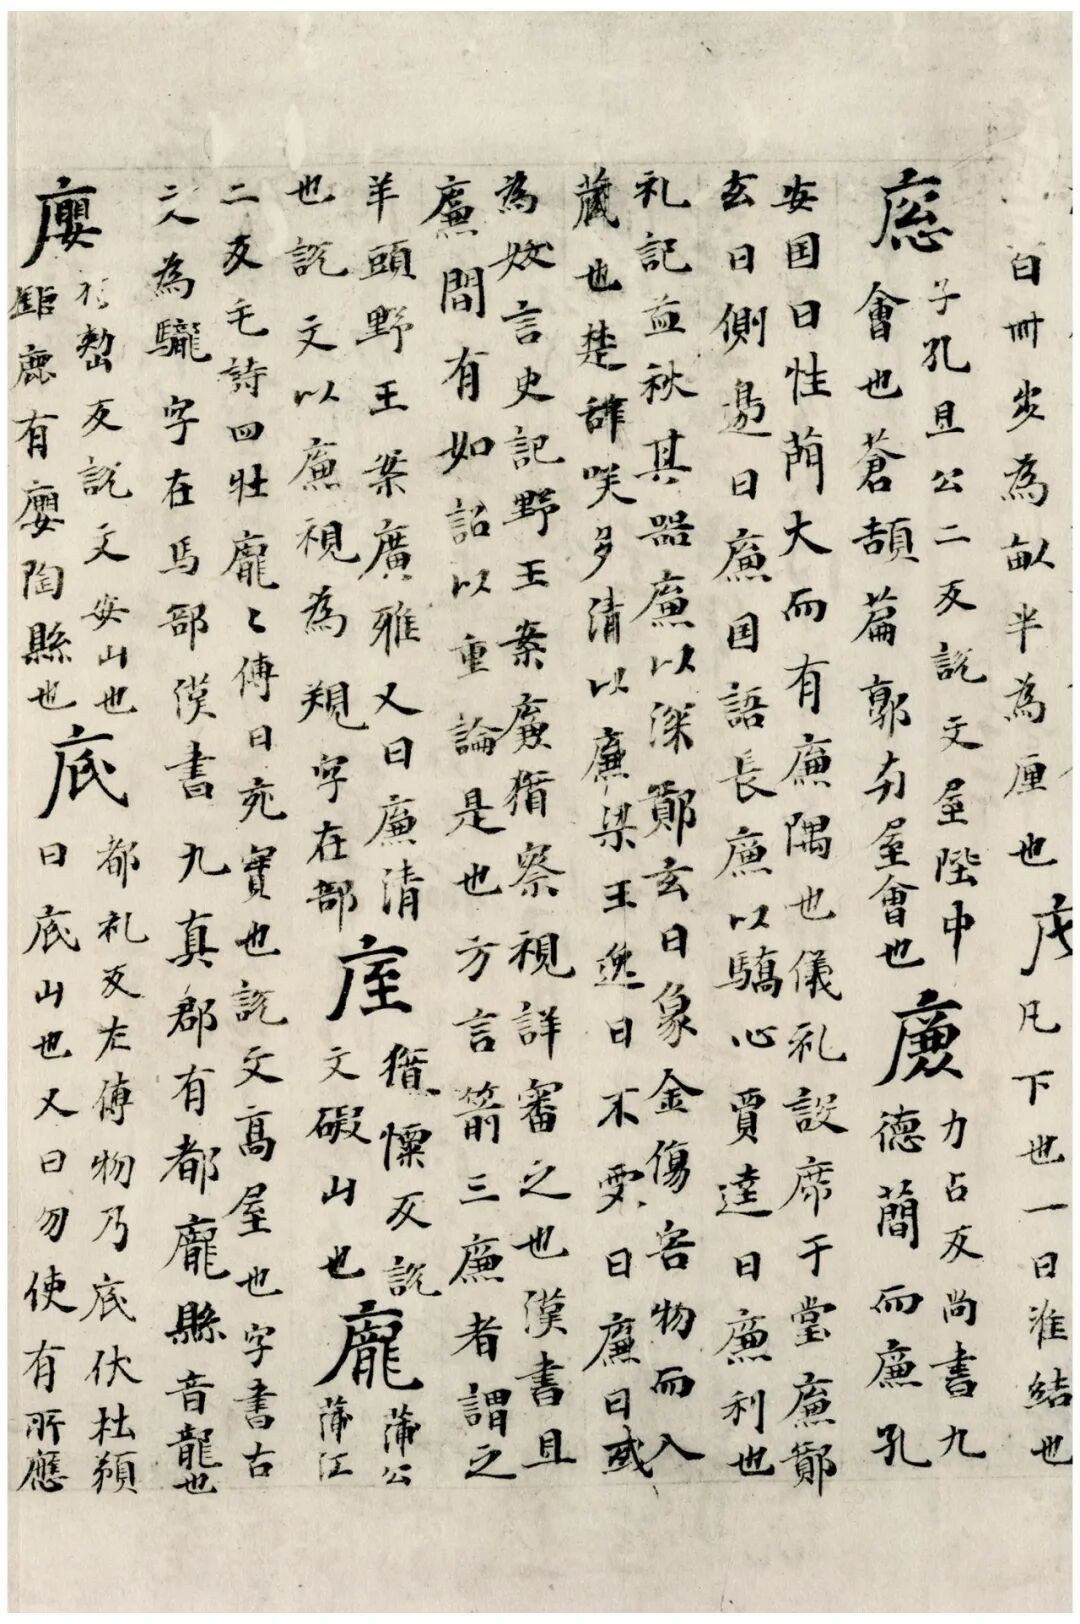 白卌步為畝半為㕓也
凡下也一曰淮結也
㢔子孔且公二反說文屋陛中
會也蒼頡篇郭內屋會也
廉力占反尚書九
德簡而廉孔
安国曰性蕳大而有廉隅也儀礼設席于堂廉鄭
玄曰側邊曰廉国語長廉以驕心賈逵曰廉利也
礼記孟秋其器廉以深鄭玄曰象金傷害物而入
藏也楚辞咲多清以廉梁王逸曰不受曰廉曰或
為姣言史記野王案廉猶察視詳審之也漢書且
廉間有如詔以重論是也方言箭三廉者謂之
羊頭野王案廣雅又曰廉清
也說文以廉視為覝字在部
庢猪懍反說
文礙山也
龐蒲公
蒲江
二反毛詩四牡龐〻傅曰宛實也說文高屋也字書古
文為驡字在馬部漢書九真郡有都龐縣音龍也
廮於反說文安山也
鉅鹿有廮陶縣也
底都礼反左傅物乃底伏杜預
曰底山也又曰勿使有所應